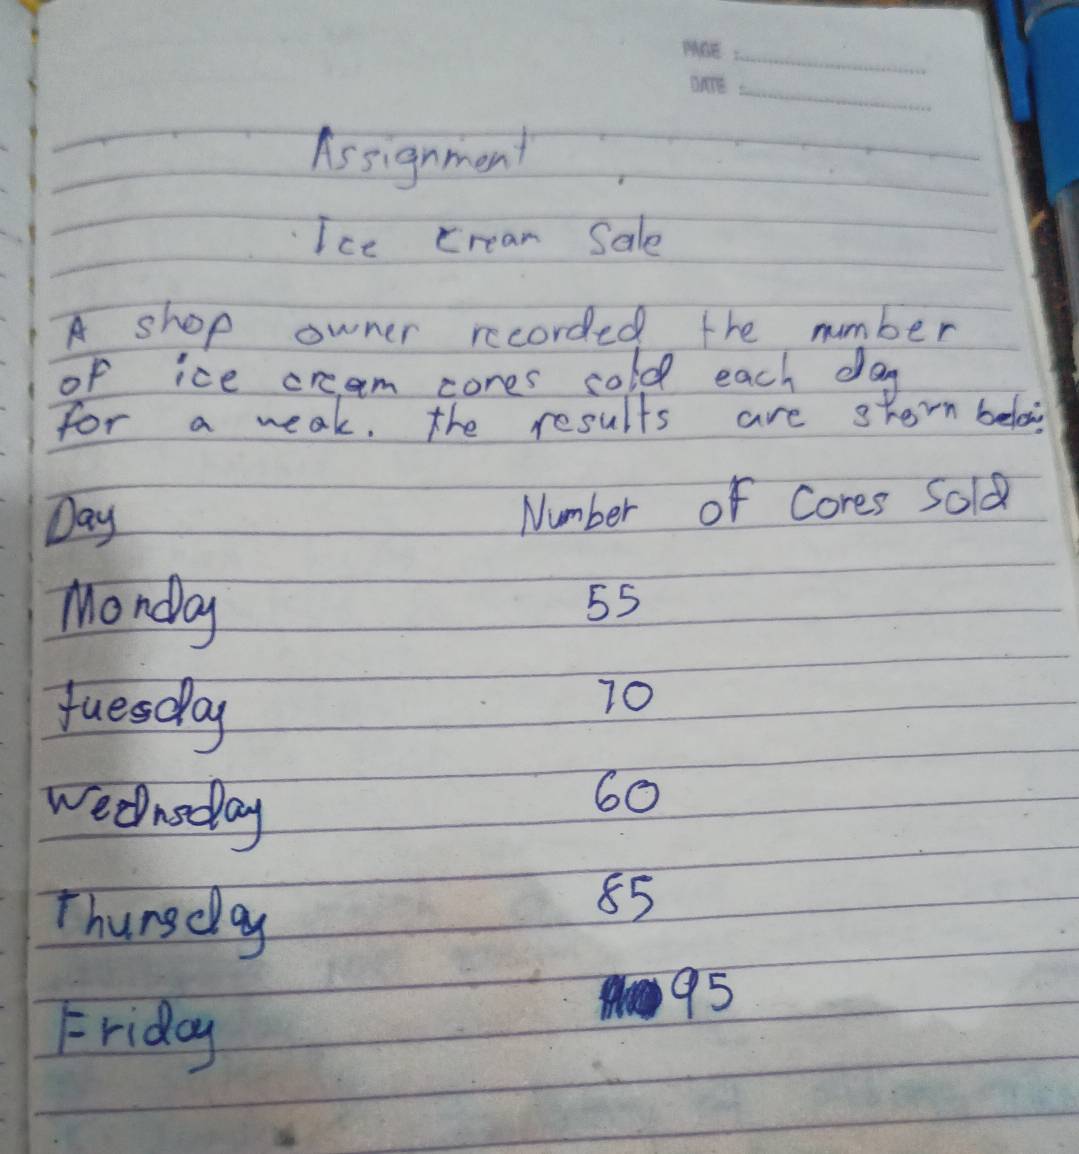 PAGE :
DATE :
Assignment
Ice cream Sale
A shop owner recorded the number
of ice cream cones sold each day
for a weak. the results are shown below:
Day Number of Cones Sold
Monday 55
tuesday 70
Wednsday 60
Thursday 85
Friday 95